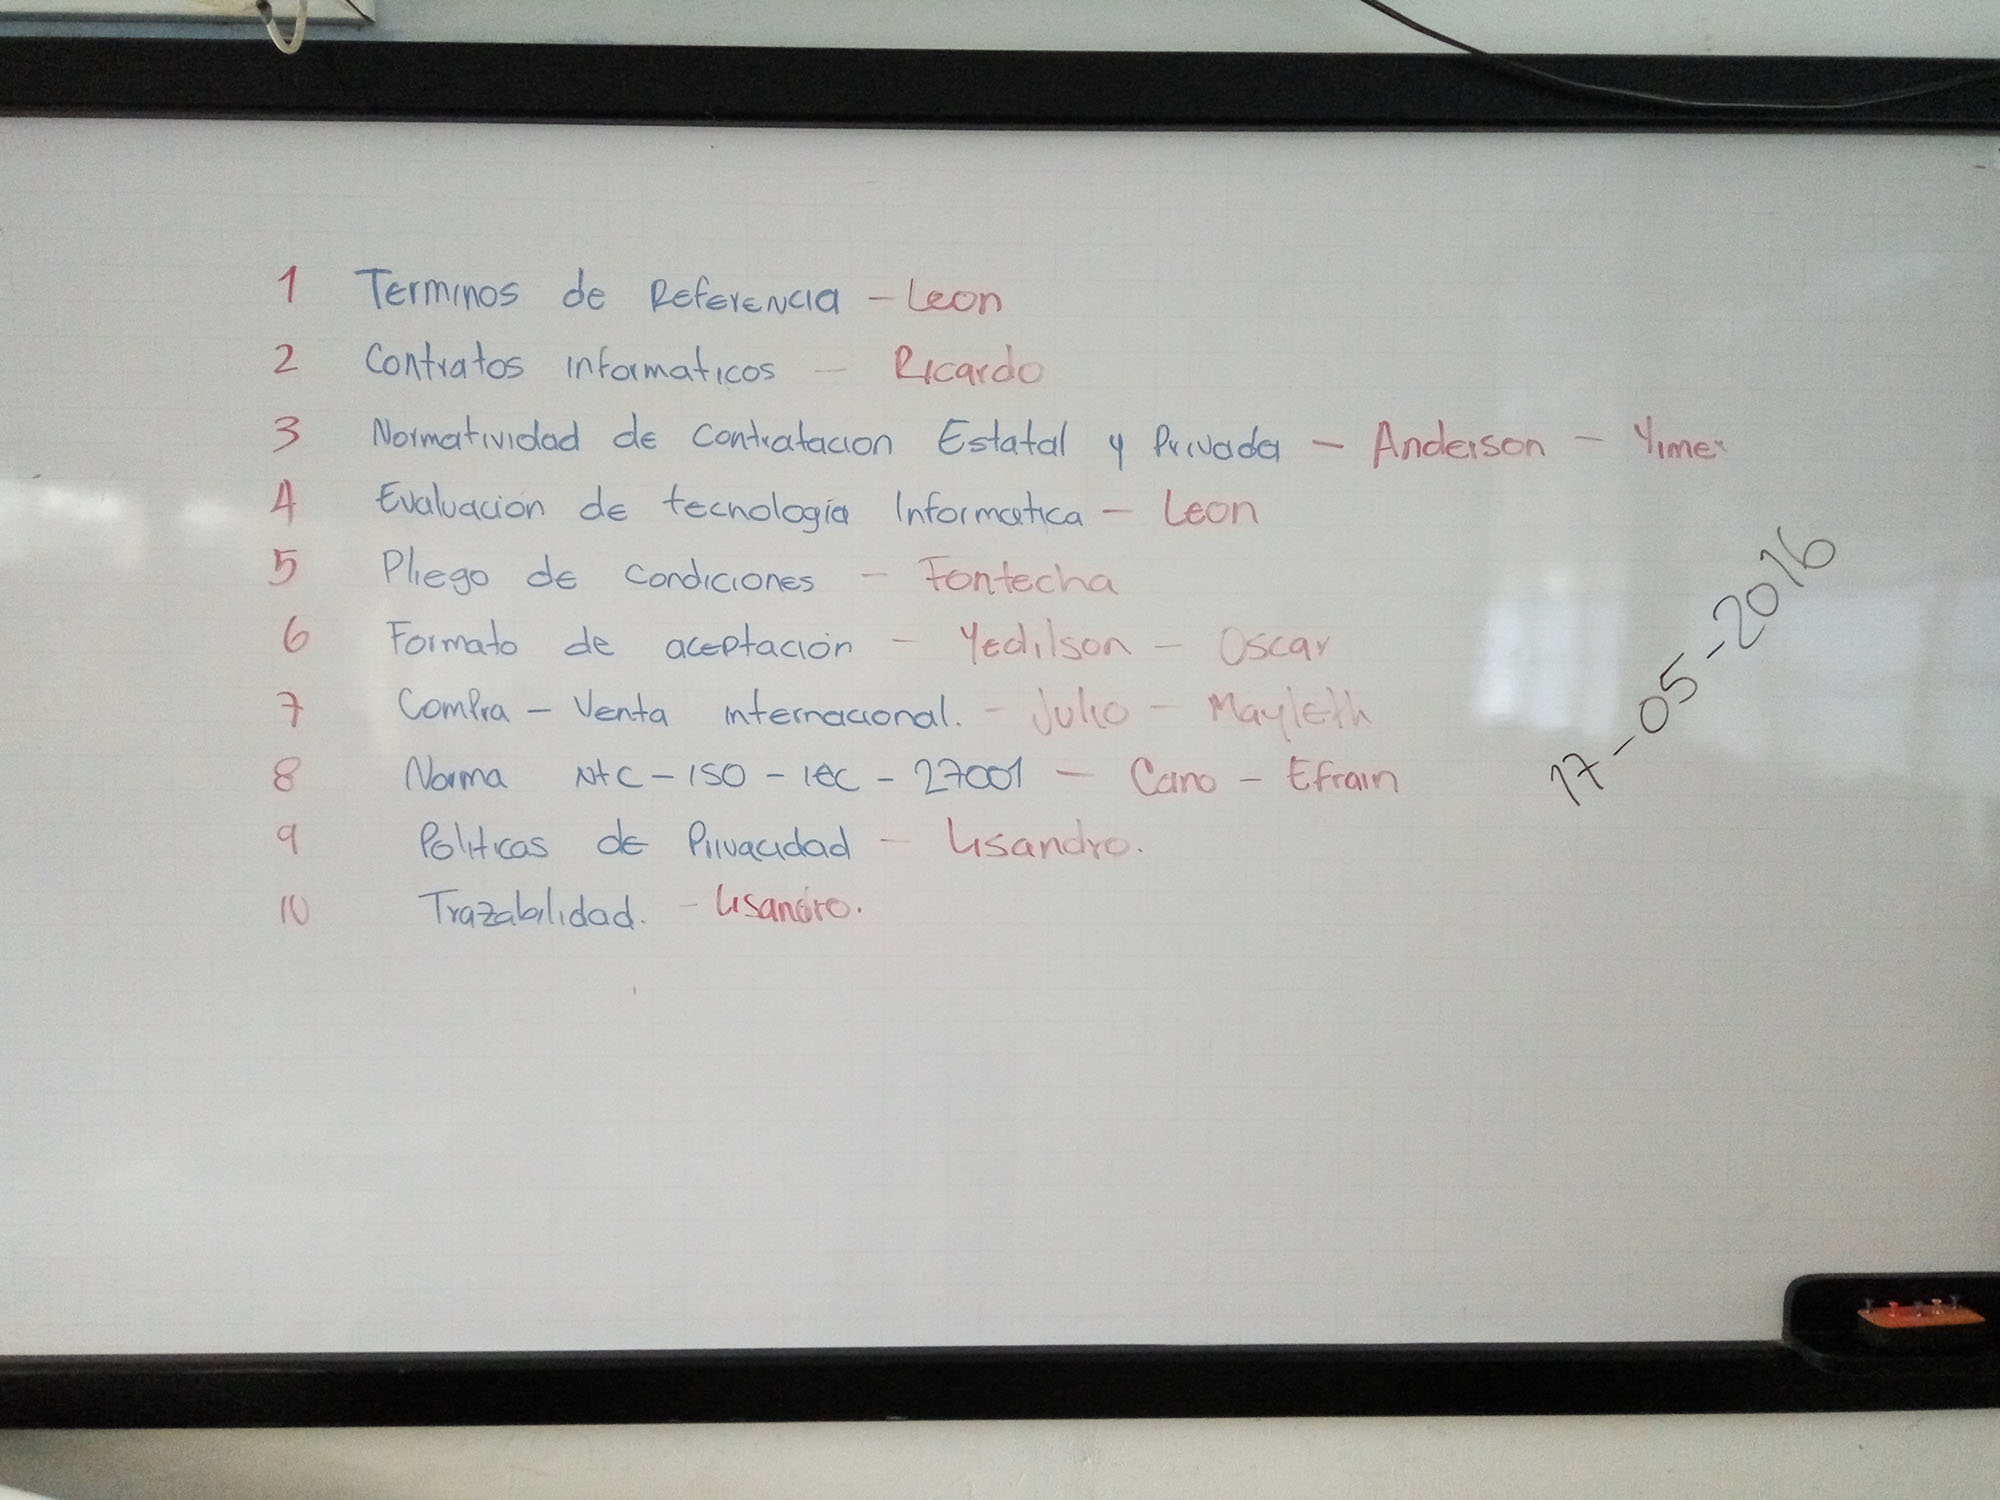 1 Terminos de Referencia - Leon
2 Contratos informaticos - Ricardo
3 Normatividad de contratacion Estatal y Privada - Anderson - Yimer
4 Evaluación de tecnología Informatica - Leon
5 Pliego de condiciones - Fontecha
6 Formato de aceptación - Yedilson - Oscar
7 Compra - Venta internacional. - Julio - Mayleth
8 Norma NtC - ISO - IEC - 27001 - Cano - Efrain
9 Politicas de Privacidad - Lisandro.
10 Trazabilidad. - Lisandro.
17-05-2016